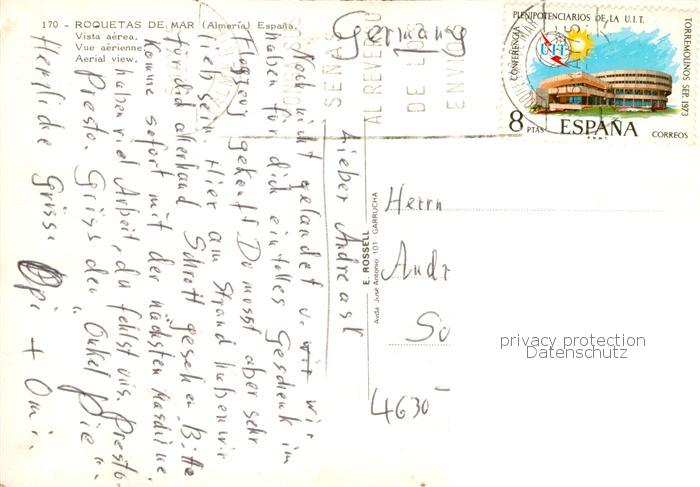 170 - ROQUETAS DE MAR (Almería) España.
Vista aérea.
Vue aérienne
Aerial view.
Germany
SEÑA
AL REVE
DE LO
ENVIO
CONFERENCIA PLENIPOTENCIARIOS DE LA U.I.T.
TORREMOLINOS SEP. 1973
UIT
8 PTAS
ESPAÑA
CORREOS
E. ROSSELL
Avda José Antonio, 101 GARRUCHA
Lieber Andreas!
Noch nicht gelandet u. wir
haben für dich ein tolles Geschenk im
Flugzeug gekauft. Du musst aber sehr
lieb sein. Hier am Strand haben wir
für dich allerhand Schrott gesehen. Bitte
Komme sofort mit der nächsten Maschine.
haben viel Arbeit, du fehlst uns. Presto-
Presto. Grüss den "Onkel Pie".
Herzliche Grüsse Opi + Omi.
Herrn
Andr
So
4630
privacy protection
Datenschutz